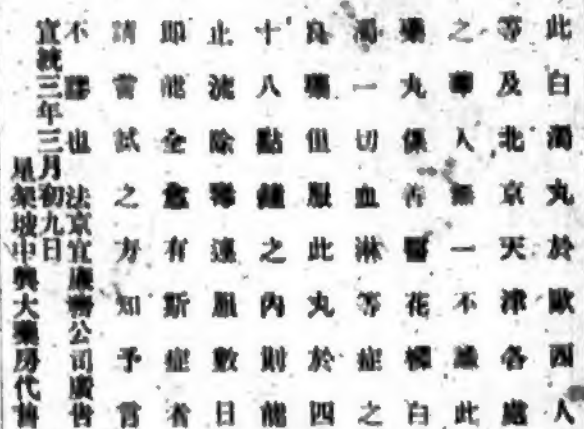 此白濁丸於歐西人
等及北京天津各處
之華人無一不識此
藥丸係善醫花柳白
濁一切血淋等症之
良藥但服此丸於四
十八點鐘之內則能
止流除毒連服數日
即能全愈有斯症者
請嘗試之方知予言
不謬也 法京宜廉濟公司廣告
宣統三年三月初九日
星架坡中興大藥房代售